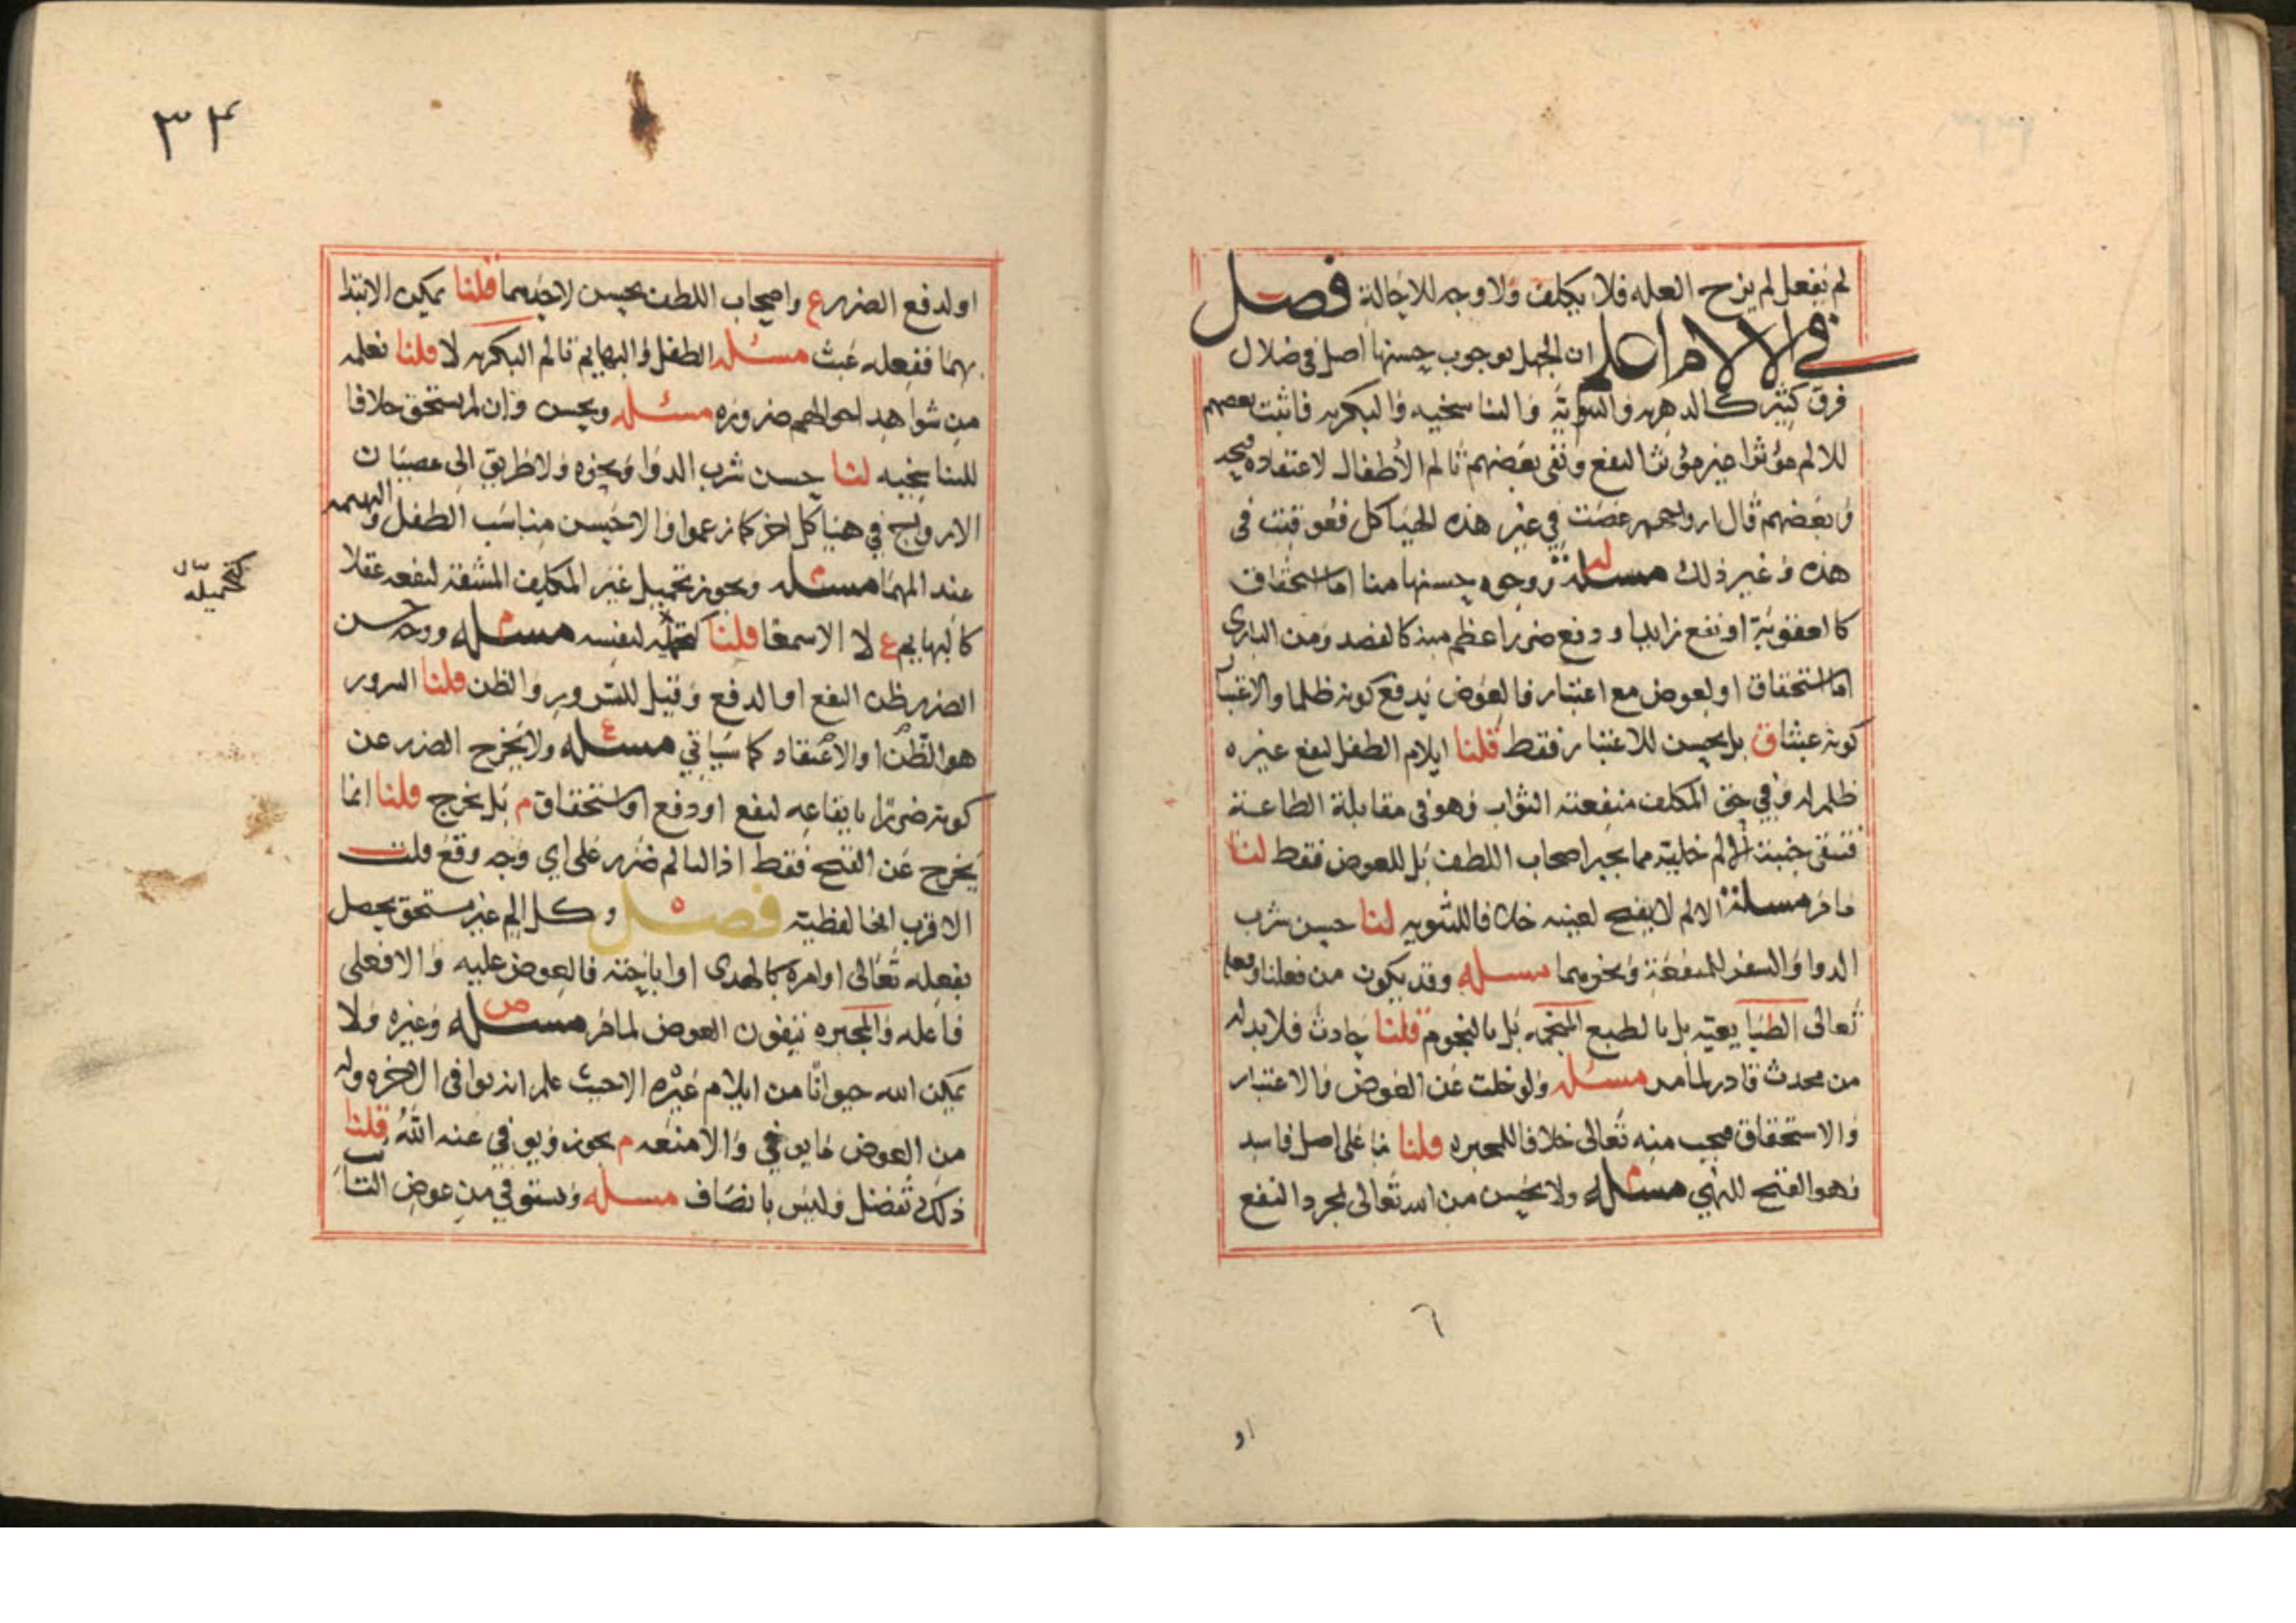 لم يفعل لم يزح العله فلا يكلف ولا وجه للاحالة فصل
في الالام اعلم ان الجهل بوجوب حسنها اصل في ضلال
فرق كثير كالدهريه والثنوية والتناسخيه والبكريه فاثبت بعضهم
للالم مؤثرا غير مؤثر النفع ونفى بعضهم تالم الأطفال لاعتقاده قبحه
وبعضهم قال ارواحهم عصت في غير هذه الهياكل فعوقبت في
هذه وغير ذلك مسئلة ووجوه حسنها منا اما استحقاق
كالعقوبة او نفع زايد او دفع ضرر اعظم منه كالفصد ومن الباري
اما استحقاق او لعوض مع اعتبار فالعوض يدفع كونه ظلما والاعتبار
كونه عبثا ق بل يحسن للاعتبار فقط قلنا ايلام الطفل لنفع غيره
ظلم له وفي حق المكلف منفعته الثواب وهو في مقابلة الطاعة
فتبقى الالم خلية مما يجبر اصحاب اللطف بل للعوض فقط لنا
ما مر مسئلة الالم لا يقبح لعينه خلافا للثنويه لنا حسن شرب
الدوا والسفر للمنفعة ونحوهما مسئله وقد يكون من فعلنا وفعله
تعالى الطبايعيه بل بالطبع المنجمه بل بالنجوم قلنا حادث فلا بد له
من محدث قادر لما مر مسئله ولو خلت عن العوض والاعتبار
والاستحقاق قبحت منه تعالى خلافا للمجبره قلنا بنا على اصل فاسد
وهو القبح للنهي مسئله ولا يحسن من الله تعالى لمجرد النفع
او
٣٤
او لدفع الضرر ع واصحاب اللطف يحسن لاحدهما قلنا يمكن الابتدا
بهما ففعله عبث مسئله الطفل والبهايم تالم البكريه لا قلنا نعلمه
من شواهد احوالهم ضروره مسئله ويحسن وان لم يستحق خلافا
للتناسخيه لنا حسن شرب الدوا ونحوه ولا طريق الى عصيان
الارواح في هياكل اخر كما زعموا والا حسن منا سب الطفل والبهيمه
عند المهما مسئله ويجوز تحميل غير المكلف المشقة لنفعه عقلا
كالبهايم ع لا الا سمعا قلنا كتحمله لنفسه مسئله ووجه حسن
كتحميله
الضرر ظن النفع او الدفع وقيل للسرور والظن قلنا السرور
هو الظن او الاعتقاد كما سياتي مسئله ولا يخرج الضرر عن
كونه ضررا بايقاعه لنفع او دفع او استحقاق م بل يخرج قلنا انما
يخرج عن القبح فقط اذ التالم ضرر على اي وجه وقع قلت
الاقرب انها لفظية فصل وكل الم غير مستحق يحصل
بفعله تعالى او امره كالهدى او اباحته فالعوض عليه والا فعلى
فاعله والمجبره ينفون العوض لما مر مسئله وغيره ولا
يمكن الله حيوانا من ايلام غيره الا حيث علم انه يوافي الاخره وله
من العوض ما يوفي والا منعه م يجوز ويوفي عنه الله قلنا
ذلك تفضل وليس بانصاف مسئله ويستوفي من عوض التا